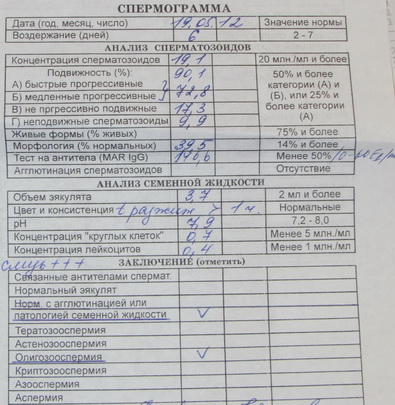 СПЕРМОГРАММА
Дата (год, месяц, число) 19.05.12 Значение нормы
Воздержание (дней) 6 2 - 7
АНАЛИЗ СПЕРМАТОЗОИДОВ
Концентрация сперматозоидов 19,1 20 млн./мл и более
Подвижность (%): 90,1 50% и более
А) быстрые прогрессивные категории (А) и
Б) медленные прогрессивные } 72,8 (Б), или 25% и
В) не прогрессивно подвижные 17,3 более категории
Г) неподвижные сперматозоиды 9,9 (А)
Живые формы (% живых) 75% и более
Морфология (% нормальных) 39,5 14% и более
Тест на антитела (MAR IgG) Менее 50%
Агглютинация сперматозоидов Отсутствие
АНАЛИЗ СЕМЕННОЙ ЖИДКОСТИ
Объем эякулята 3,7 2 мл и более
Цвет и консистенция t разжиж > 1 ч. Нормальные
pH 7,9 7,2 - 8,0
Концентрация "круглых клеток" 0,7 Менее 5 млн./мл
Концентрация лейкоцитов 0,4 Менее 1 млн./мл
слизь +++ ЗАКЛЮЧЕНИЕ (отметить)
Связанные антителами спермат.
Нормальный эякулят
Норм. с агглютинацией или
патологией семенной жидкости V
Тератозооспермия
Астенозооспермия
Олигозооспермия V
Криптозооспермия
Азооспермия
Аспермия